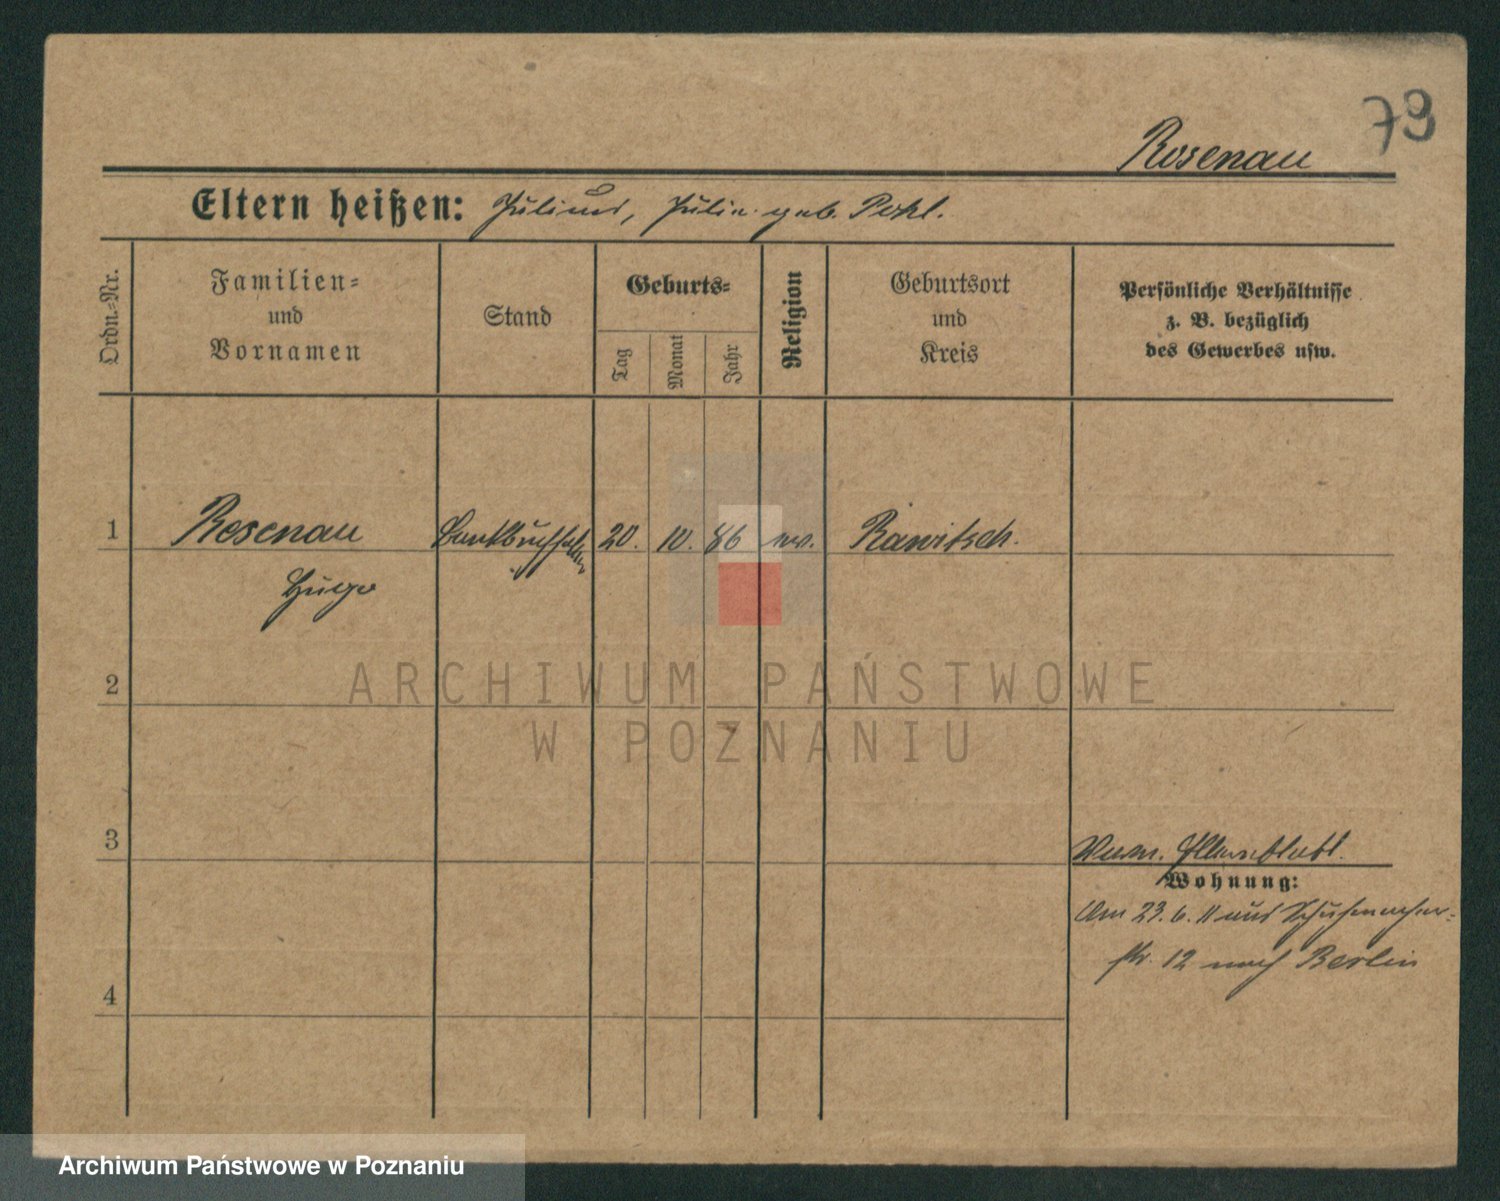 79
Rosenau
Eltern heißen: Julius, Julie geb. Pohl.
Ordn.=Nr.
Familien=
und
Vornamen
Stand
Geburts=
Tag
Monat
Jahr
Religion
Geburtsort
und
Kreis
Persönliche Verhältnisse
z. B. bezüglich
des Gewerbes usw.
1
Rosenau
Hugo
Bankbuchhalter
20.
10.
86
ev.
Rawitsch.
2
ARCHIWUM PAŃSTWOWE
W POZNANIU
3
Wohnung:
Am 23.6.11 aus Schuhmacher=
str. 12 nach Berlin
4
Archiwum Państwowe w Poznaniu